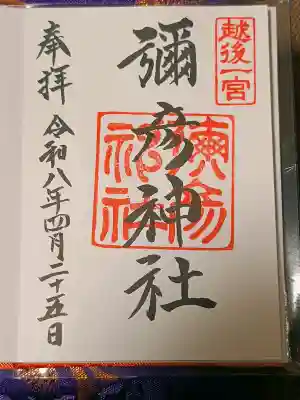 越後一宮
彌彦神社
彌彦神社
奉拝 令和八年四月二十五日